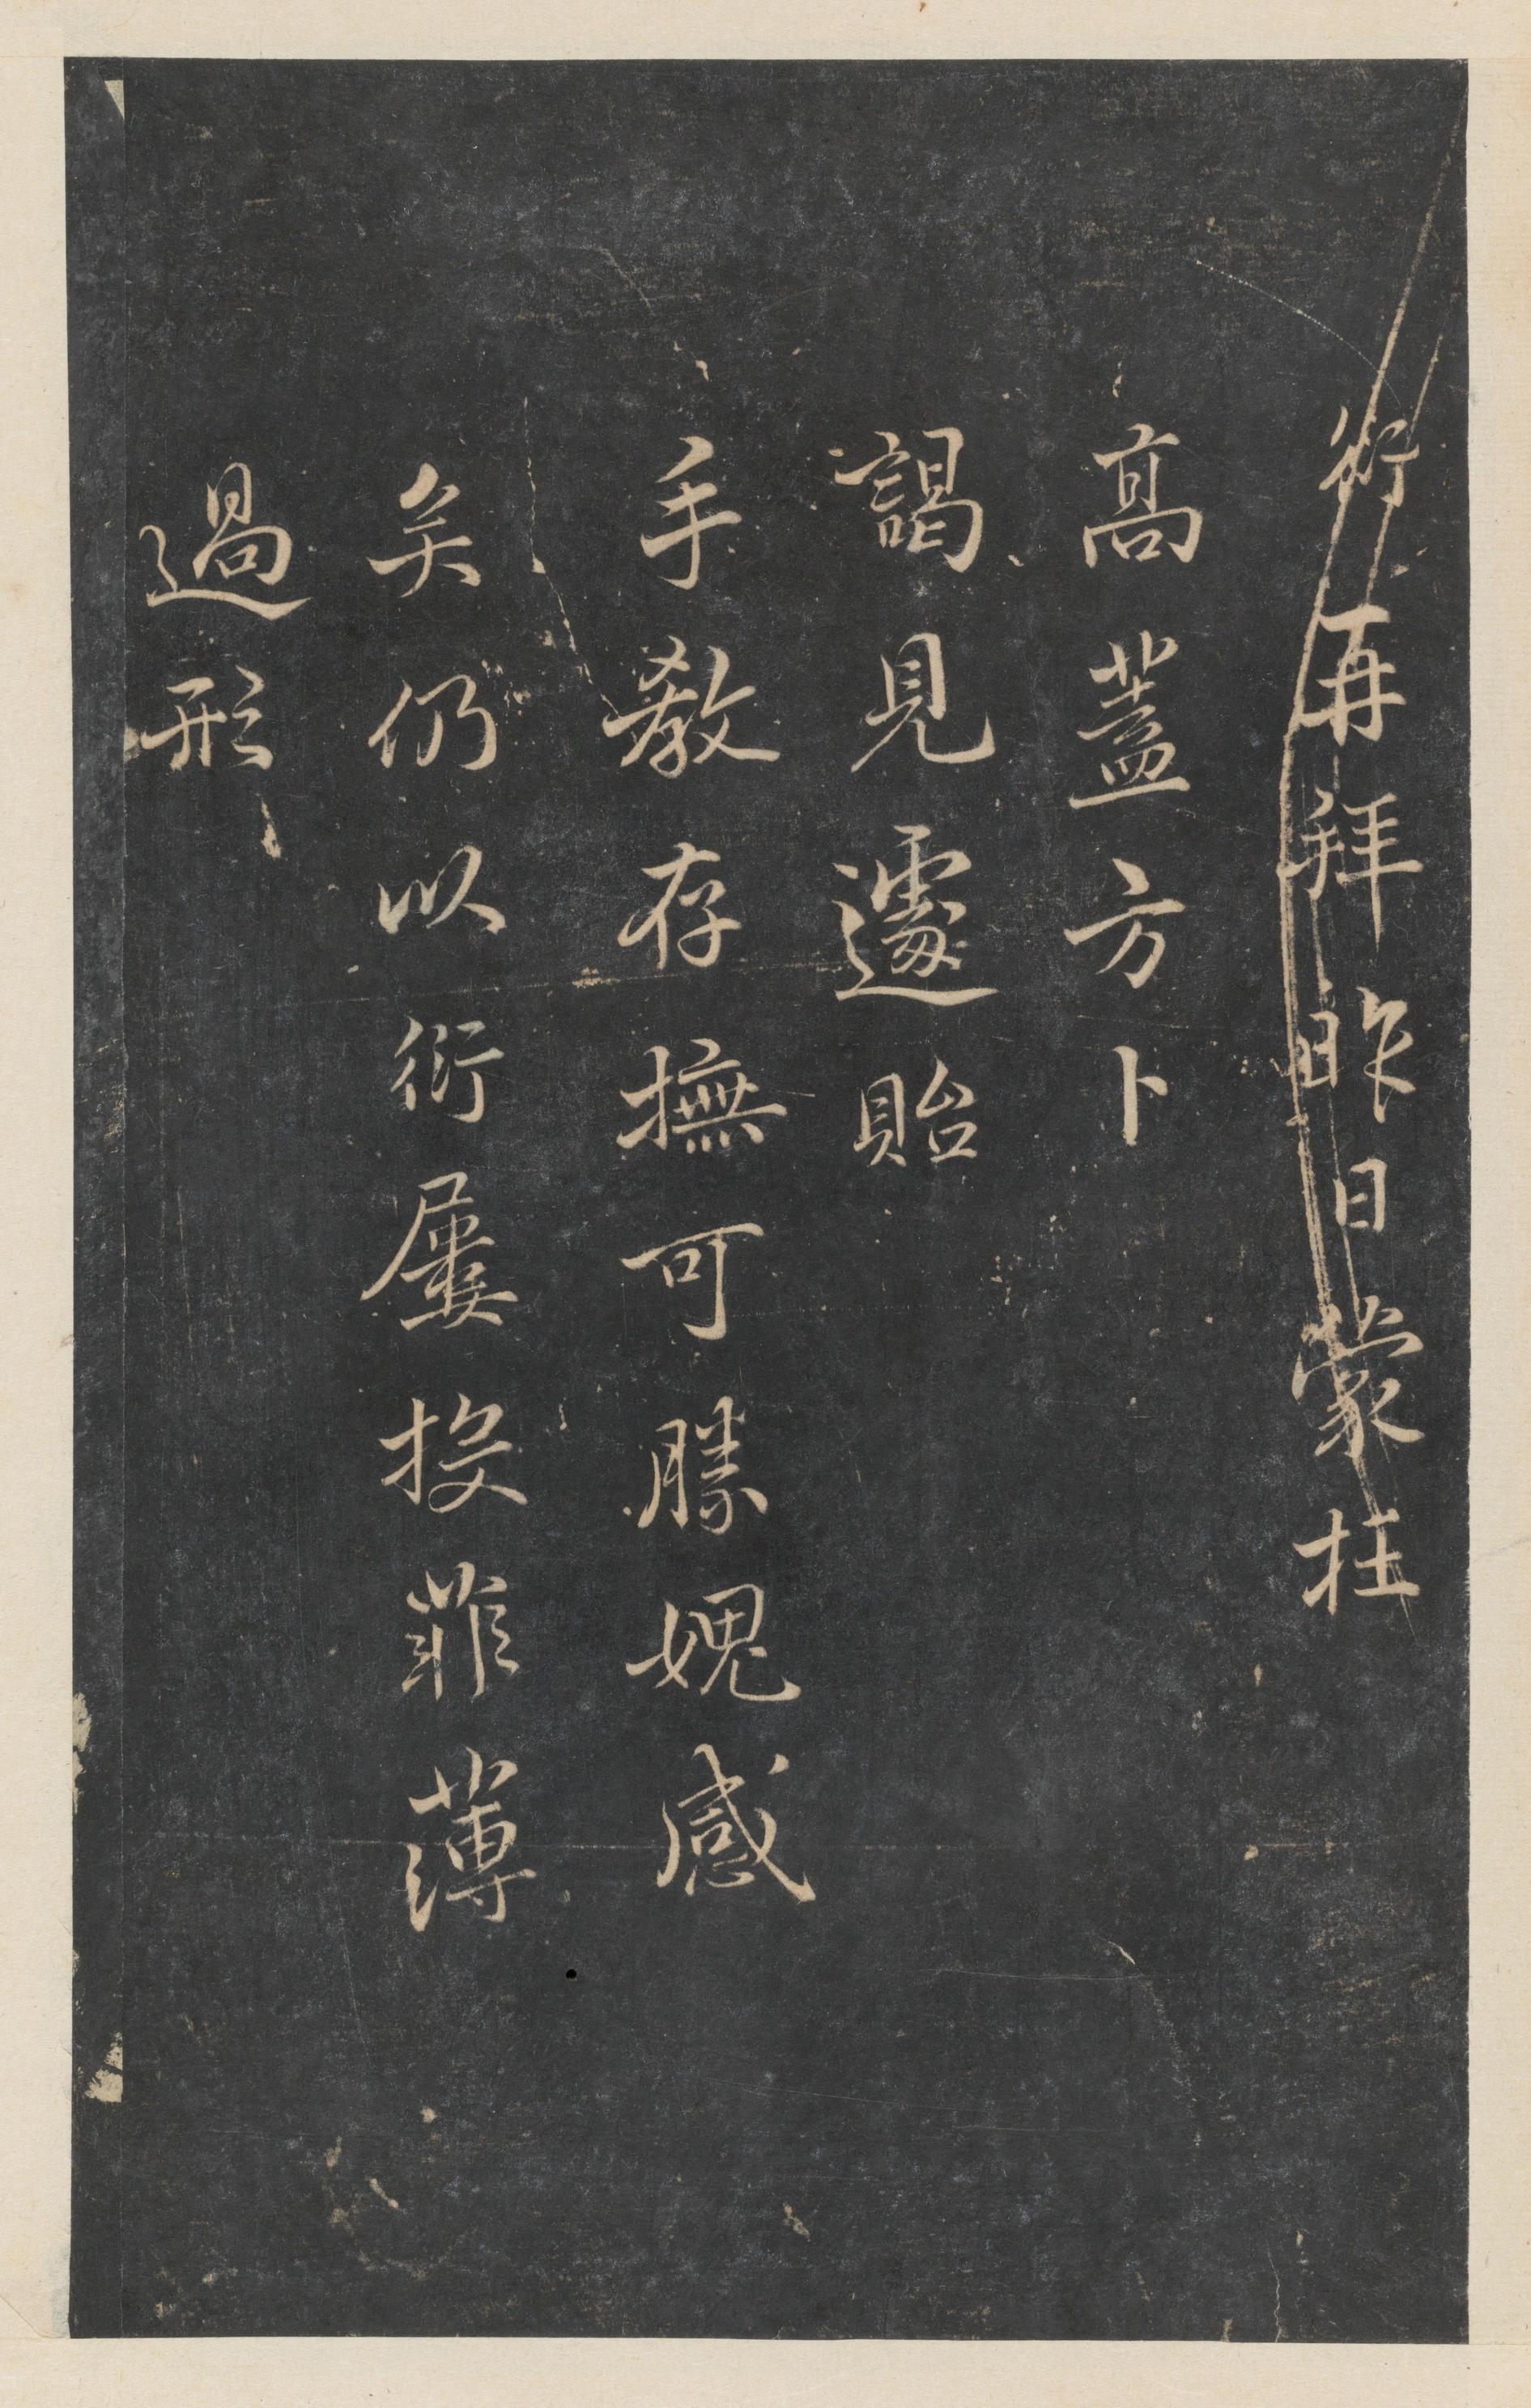 衍再拜昨日蒙枉
高蓋方卜
謁見遽貽
手教存撫可勝媿感
矣仍以衍屢投菲薄
過形